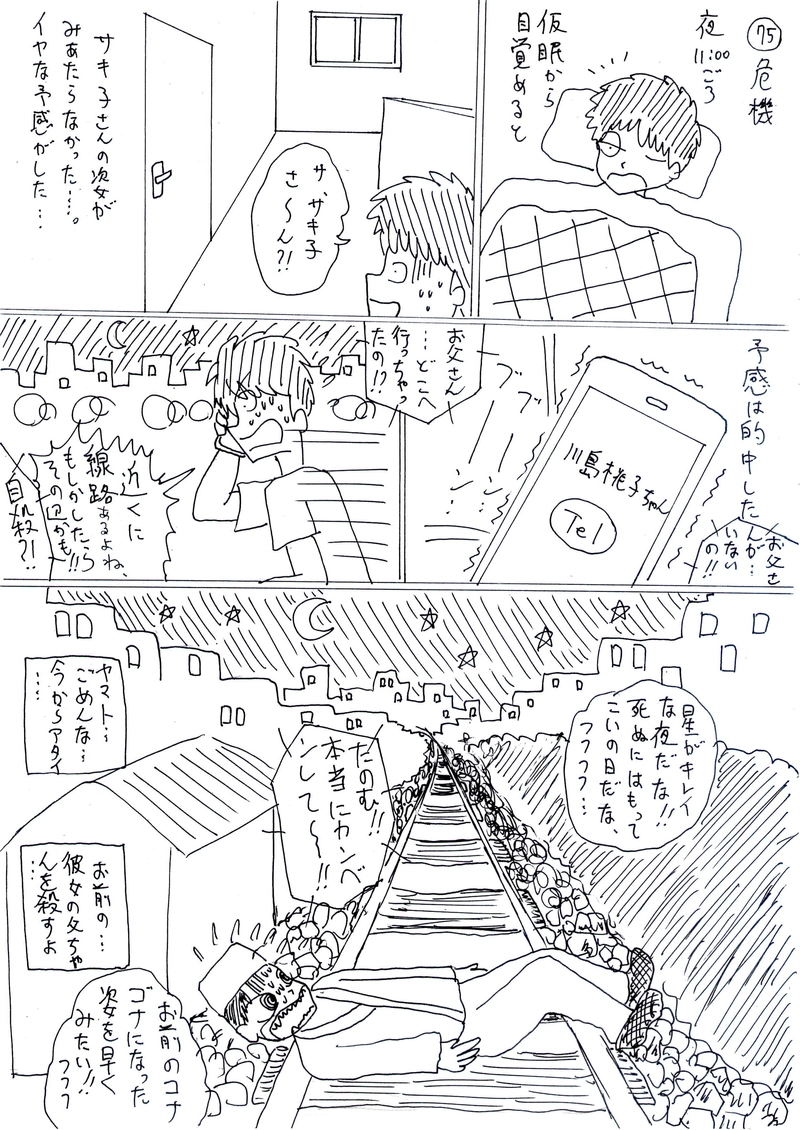 75
危機
夜
11:00ごろ
仮眠から
目覚めると
サ、サキ子
さ〜ん?!
サキ子さんの次女が
みあたらなかった…。
イヤな予感がした…
予感は的中した
お父さ
んが…
いない
の!!
川島桃子ちゃん
Tel
ブブ
お父さん
…どこへ
行っちゃっ
たの!?
近くに
線路あるよね、
もしかしたら
その辺かも!!
自殺?!
星がキレイ
な夜だな!!
死ぬにはもって
こいの日だな、
フフフフ…
たのむ!!
本当にカンベ
ンして〜!!
ヤマト…
ごめんな…
今からアタイ
……
お前の…
彼女の父ちゃ
んを殺すよ
…
お前のコナ
ゴナになった
姿を早く
みたい!!
フフフ